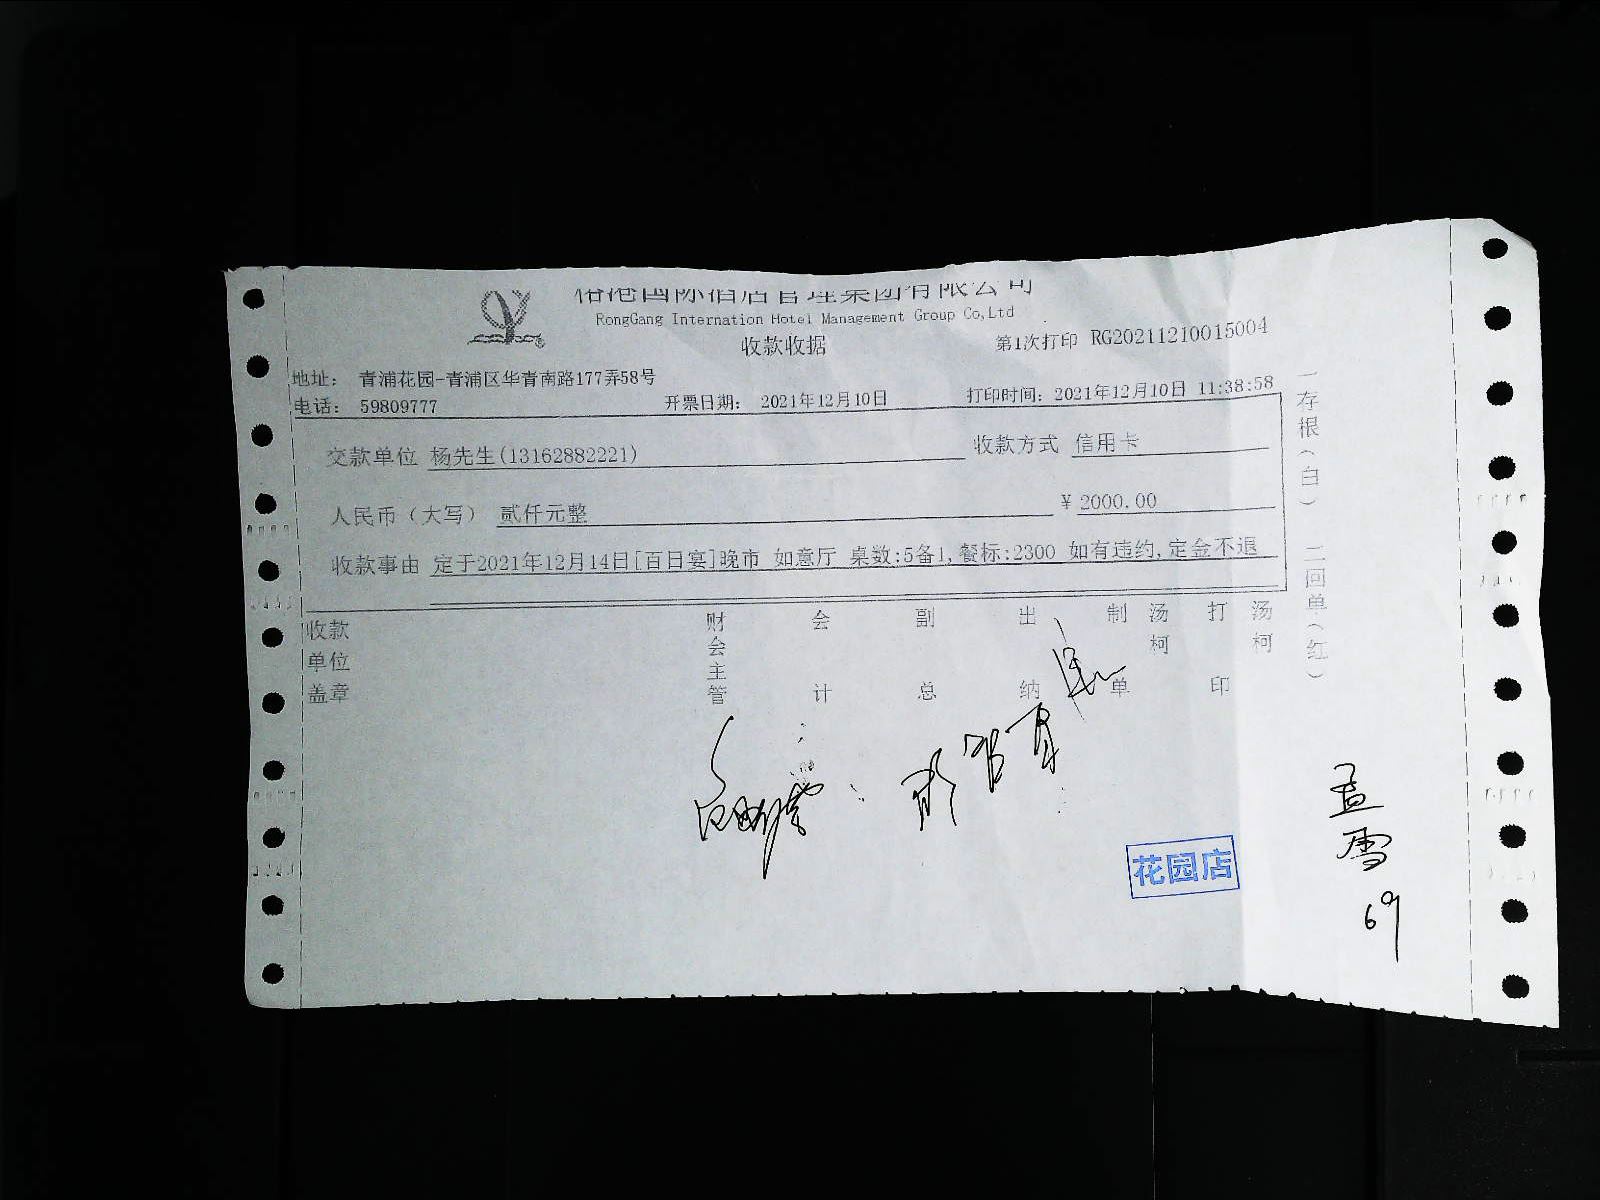 国际酒店管理集团有限公司
RongGang Internation Hotel Management Group Co,Ltd
收款收据
第1次打印 RG20211210015004
地址： 青浦花园-青浦区华青南路177弄58号
电话： 59809777
开票日期： 2021年12月10日
打印时间：2021年12月10日 11:38:58
交款单位 杨先生(13162882221)
收款方式 信用卡
人民币（大写） 贰仟元整
￥2000.00
收款事由 定于2021年12月14日[百日宴]晚市 如意厅 桌数:5备1,餐标:2300 如有违约,定金不退
收款单位盖章
财会主管
会计
副总
出纳
制单
汤柯
打印
汤柯
一存根（白） 二回单（红）
花园店
孟雪
69